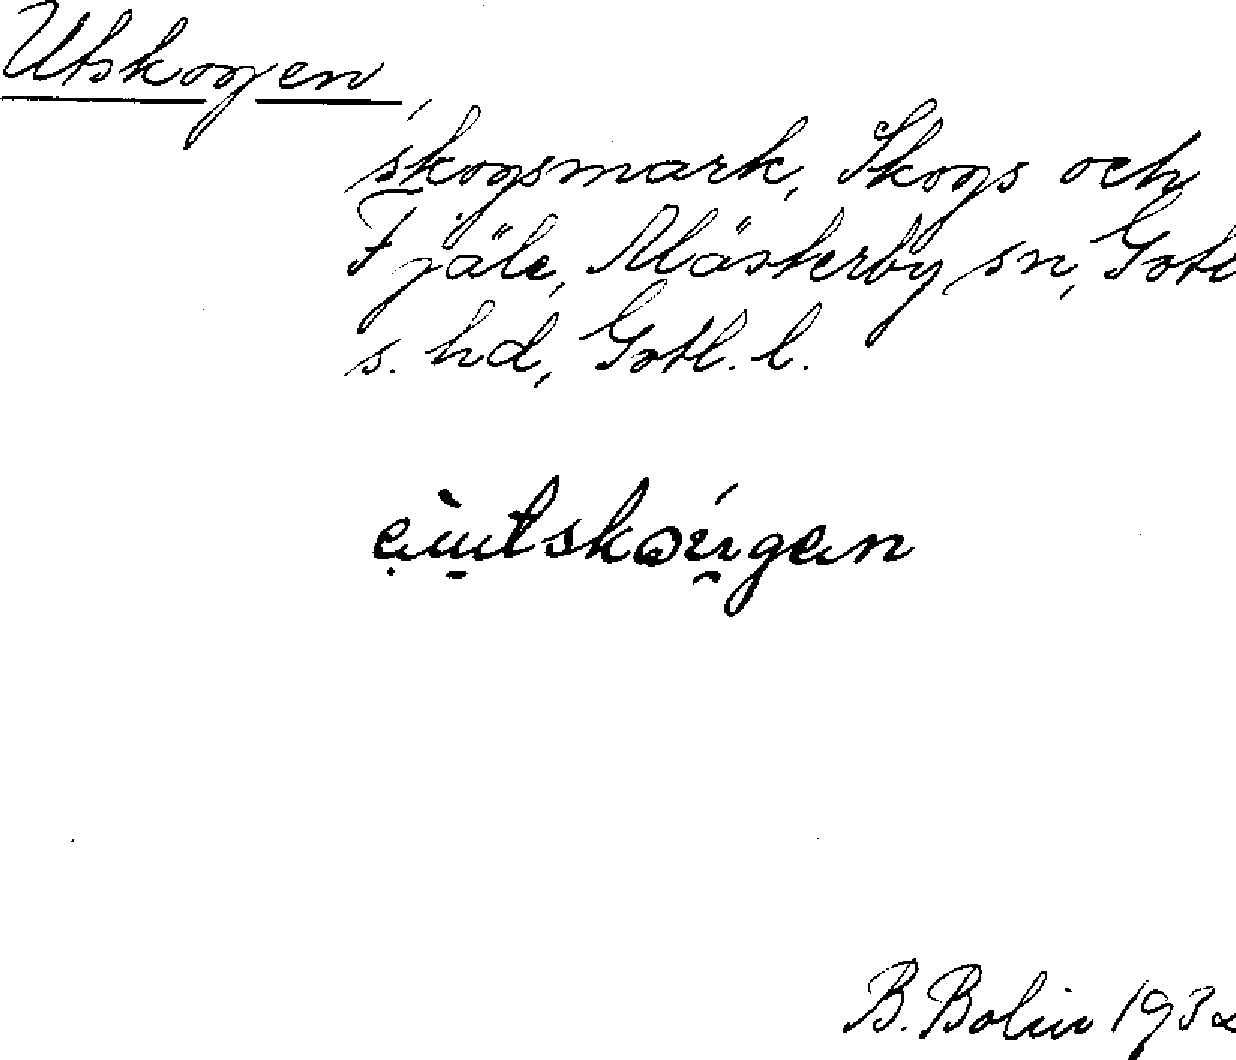 Utskogen,
skogsmark, Skogs och
Fjäle, Mästerby sn, Gotl
s. hd, Gotl. l.
B. Bolin 1932